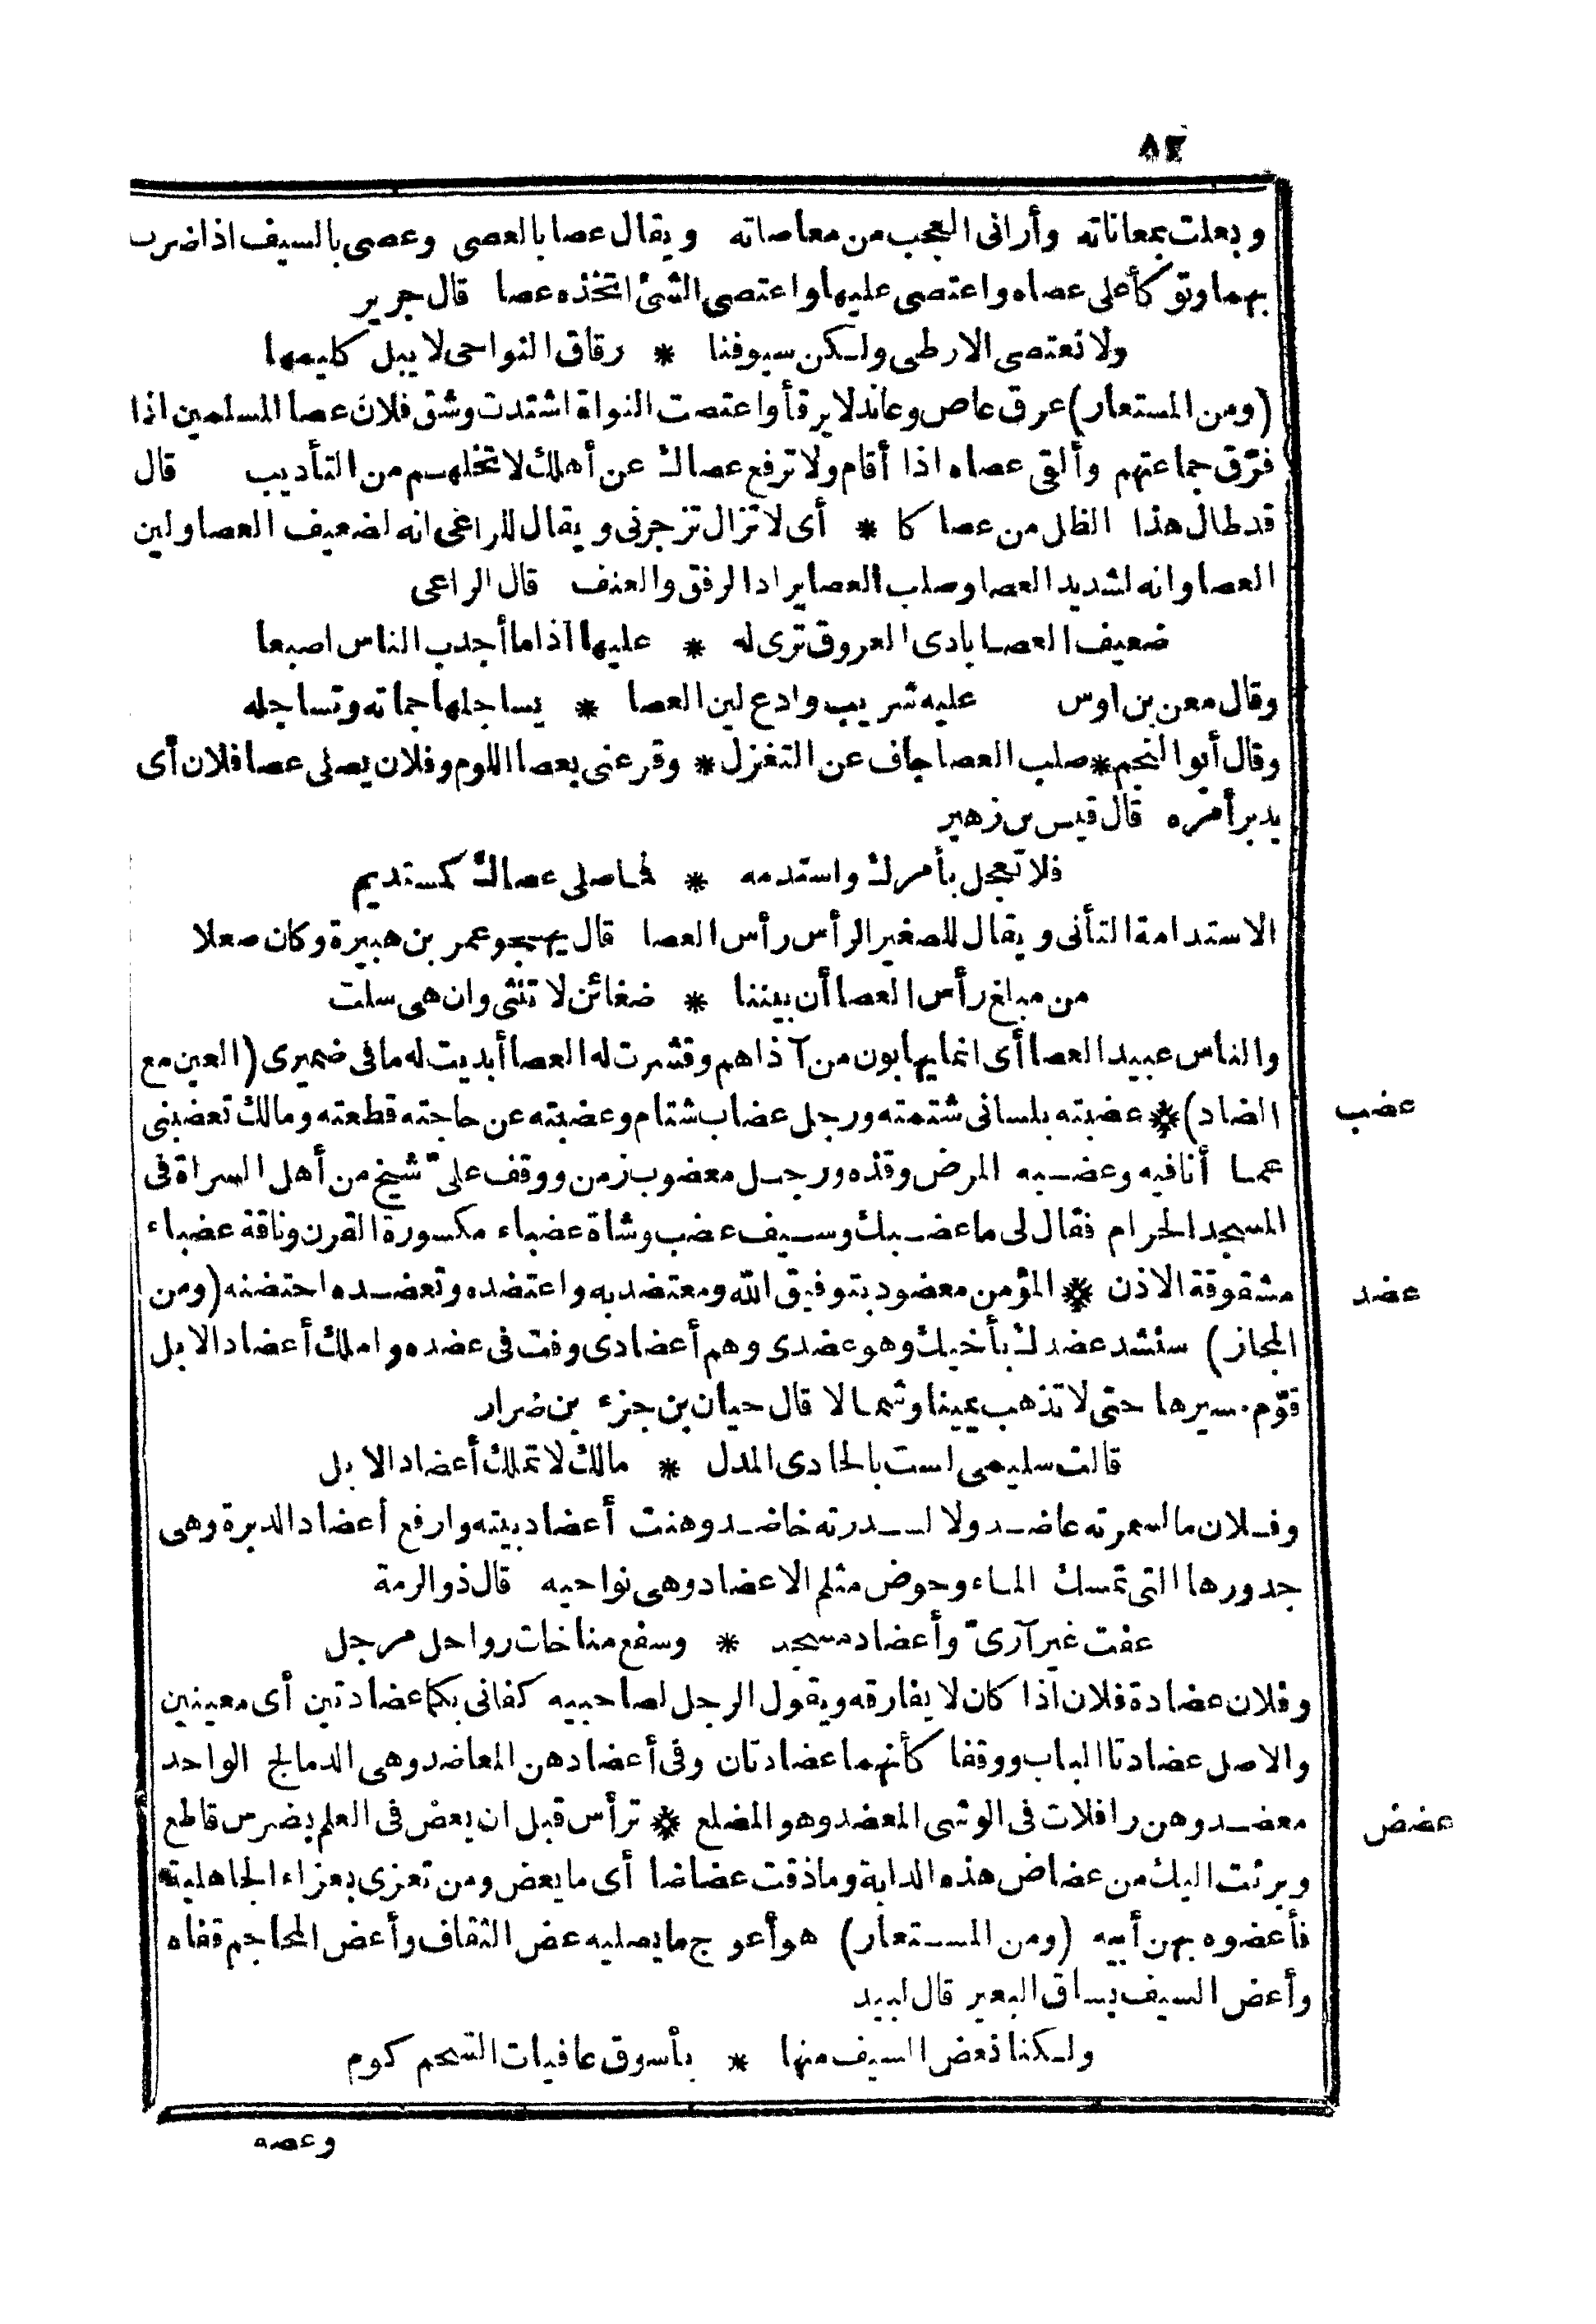 ٨٤
وبعلت بمعاناته وأرانى العجب من معاصاته ويقال عصا بالعصى وعصى بالسيف اذا ضرب
بهما وتوكأ على عصاه واعتصى عليها واعتصى الشئ اتخذه عصا قال جرير
ولا نعتصى الارطى ولكن سيوفنا * رقاق النواحى لا يبل كليمها
(ومن المستعار) عرق عاص وعاند لا يرقأ واعتصت النواة اشتدت وشق فلان عصا المسلمين اذا
فرّق جماعتهم وألقى عصاه اذا أقام ولا ترفع عصاك عن أهلك لا تخلهم من التأديب قال
قد طال هذا الظل من عصاكا * أى لا تزال تزجرنى ويقال للراعى انه لضعيف العصا ولين
العصا وانه لشديد العصا وصلب العصا يراد الرفق والعنف قال الراعى
ضعيف العصا بادى العروق ترى له * عليها اذا ما أجدب الناس اصبعا
وقال معن بن اوس عليه شريب وادع لين العصا * يساجلها جماته وتساجله
وقال أبو النجم * صلب العصا جاف عن التغزل * وقرعنى بعصا اللوم وفلان يصلى عصا فلان أى
يدبر أمره قال قيس بن زهير
فلا تعجل بأمرك واستدمه * فما صلى عصاك كمستديم
الاستدامة التأنى ويقال للصغير الرأس رأس العصا قال يهجو عمر بن هبيرة وكان صعلا
من مبلغ رأس العصا أن بيننا * ضغائن لا تنثى وان هى سلت
والناس عبيد العصا أى انما يهابون من آذاهم وقشرت له العصا أبديت له ما فى ضميرى (العين مع
عضب الضاد) * عضبته بلسانى شتمته ورجل عضاب شتام وعضبته عن حاجته قطعته ومالك تعضبنى
عما أنا فيه وعضبه المرض وقذه ورجل معضوب زمن ووقف علىّ شيخ من أهل السراة فى
المسجد الحرام فقال لى ما عضبك وسيف عضب وشاة عضباء مكسورة القرن وناقة عضباء
عضد مشقوقة الاذن * المؤمن معضود بتوفيق الله ومعتضد به واعتضده وتعضده احتضنه (ومن
المجاز) سنشد عضدك بأخيك وهو عضدى وهم أعضادى وفت فى عضده واملك أعضاد الابل
قوّم سيرها حتى لا تذهب يمينا وشمالا قال حيان بن جزء بن ضرار
قالت سليمى لست بالحادى المدل * مالك لا تملك أعضاد الابل
وفلان ما لسمرته عاضد ولا لسدرته خاضد وهنت أعضاد بيته وارفع أعضاد الدبرة وهى
جدورها التى تمسك الماء وحوض مثلم الاعضاد وهى نواحيه قال ذو الرمة
عفت غير آرىّ وأعضاد مسجد * وسفع مناخات رواحل مرجل
وفلان عضادة فلان اذا كان لا يفارقه ويقول الرجل لصاحبيه كفانى بكما عضادتين أى معينين
والاصل عضادتا الباب ووقفا كأنهما عضادتان وفى أعضادهن المعاضد وهى الدمالج الواحد
عضض معضد وهن رافلات فى الوشى المعضد وهو المضلع * ترأس قبل ان يعض فى العلم بضرس قاطع
وبرئت اليك من عضاض هذه الدابة وما ذقت عضاضا أى ما يعض ومن تعزى بعزاء الجاهلية
فأعضوه بهن أبيه (ومن المستعار) هو أعوج ما يصليه عض الثقاف وأعض المحاجم قفاه
وأعض السيف بساق البعير قال لبيد
ولكنا نعض السيف منها * بأسوق عافيات الشحم كوم
وعصه